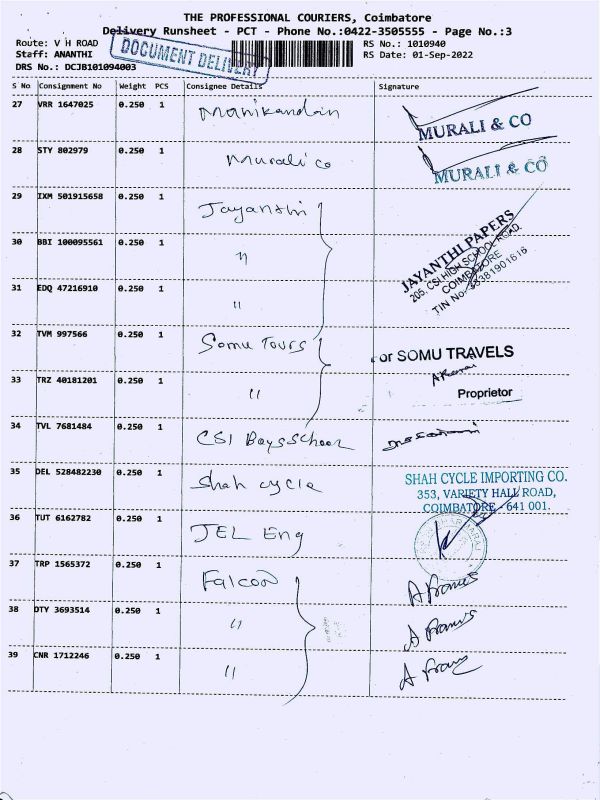 THE PROFESSIONAL COURIERS, Coimbatore
Delivery Runsheet - PCT - Phone No.:0422-3505555 - Page No.:3
Route: V H ROAD
Staff: ANANTHI
DRS No.: DCJB101094003
DOCUMENT DELIVERY
RS No.: 1010940
RS Date: 01-Sep-2022
S No Consignment No Weight PCS Consignee Details Signature
27 VRR 1647025 0.250 1 Manikandan
MURALI & CO
28 STY 802979 0.250 1 Murali co
MURALI & CO
29 IXM 501915658 0.250 1 Jayanthi
JAYANTHI PAPERS
205, CSI HIGH SCHOOL ROAD,
COIMBATORE
TIN No-
30 BBI 100095561 0.250 1 "
31 EDQ 47216910 0.250 1 "
32 TVM 997566 0.250 1 Somu Tours
or SOMU TRAVELS
33 TRZ 40181201 0.250 1 "
Proprietor
34 TVL 7681484 0.250 1 CSI Boys School
35 DEL 528482230 0.250 1 Shah cycle
SHAH CYCLE IMPORTING CO.
353, VARIETY HALL ROAD,
COIMBATORE - 641 001.
36 TUT 6162782 0.250 1 JEL Eng
37 TRP 1565372 0.250 1 Falcon
A Francis
38 DTY 3693514 0.250 1 "
A Francis
39 CNR 1712246 0.250 1 "
A Franc